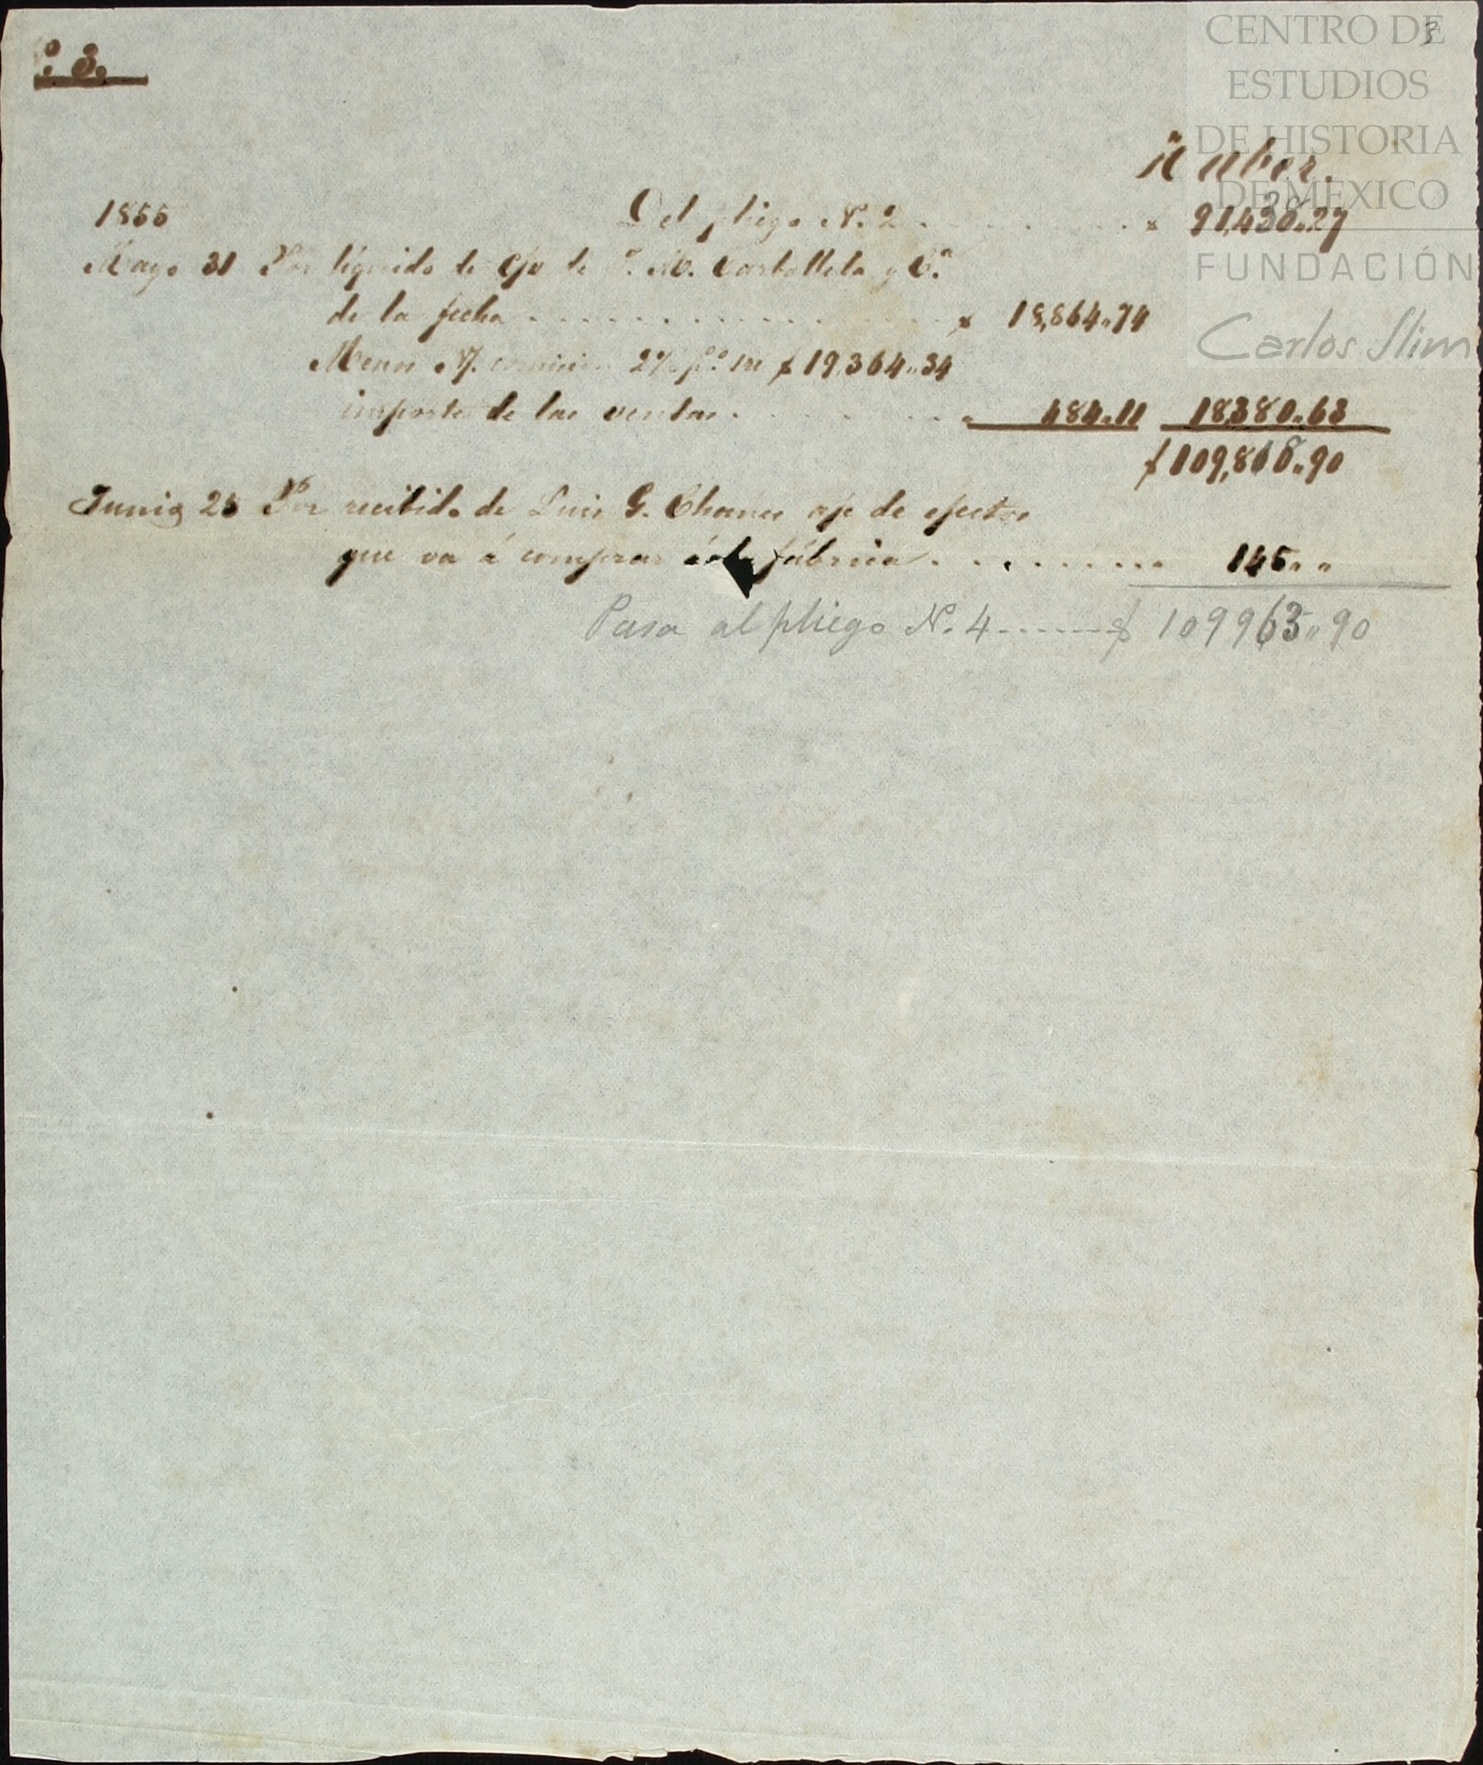 º 3.
3
CENTRO DE
ESTUDIOS
DE HISTORIA
DE MÉXICO
FUNDACIÓN
Carlos Slim
Haber.
1855 Del pliego Nº. 2 . . . . . . . . . $ 91,438,,27
Mayo 31 Por líquido de C/v de M. Carballeda y Cª.
de la fecha . . . . . . . . . . . . . $ 18,864,,74
Menos N. comision 2½ p.º sre $ 19,364,,34
importe de las ventas . . . . . . . . . " 484,,11 18,380,,63
$ 109,818,,90
Junio 25 Por recibido de Luis G. Chavez a/c de efectos
que va á comprar á la fábrica . . . . . . . . . 145,, "
Pasa al pliego N. 4 ------ $ 109963,,90